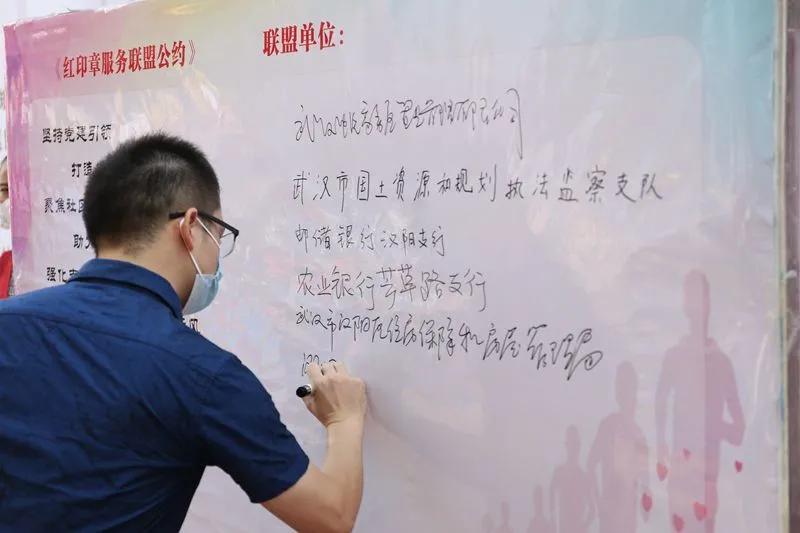 《红印章服务联盟公约》
联盟单位：
坚持党建引领
打造
聚焦社区
助
强化
风
武汉市国土资源和规划执法监察支队
邮储银行汉阳支行
农业银行芳草路支行
武汉市汉阳区住房保障和房屋管理局